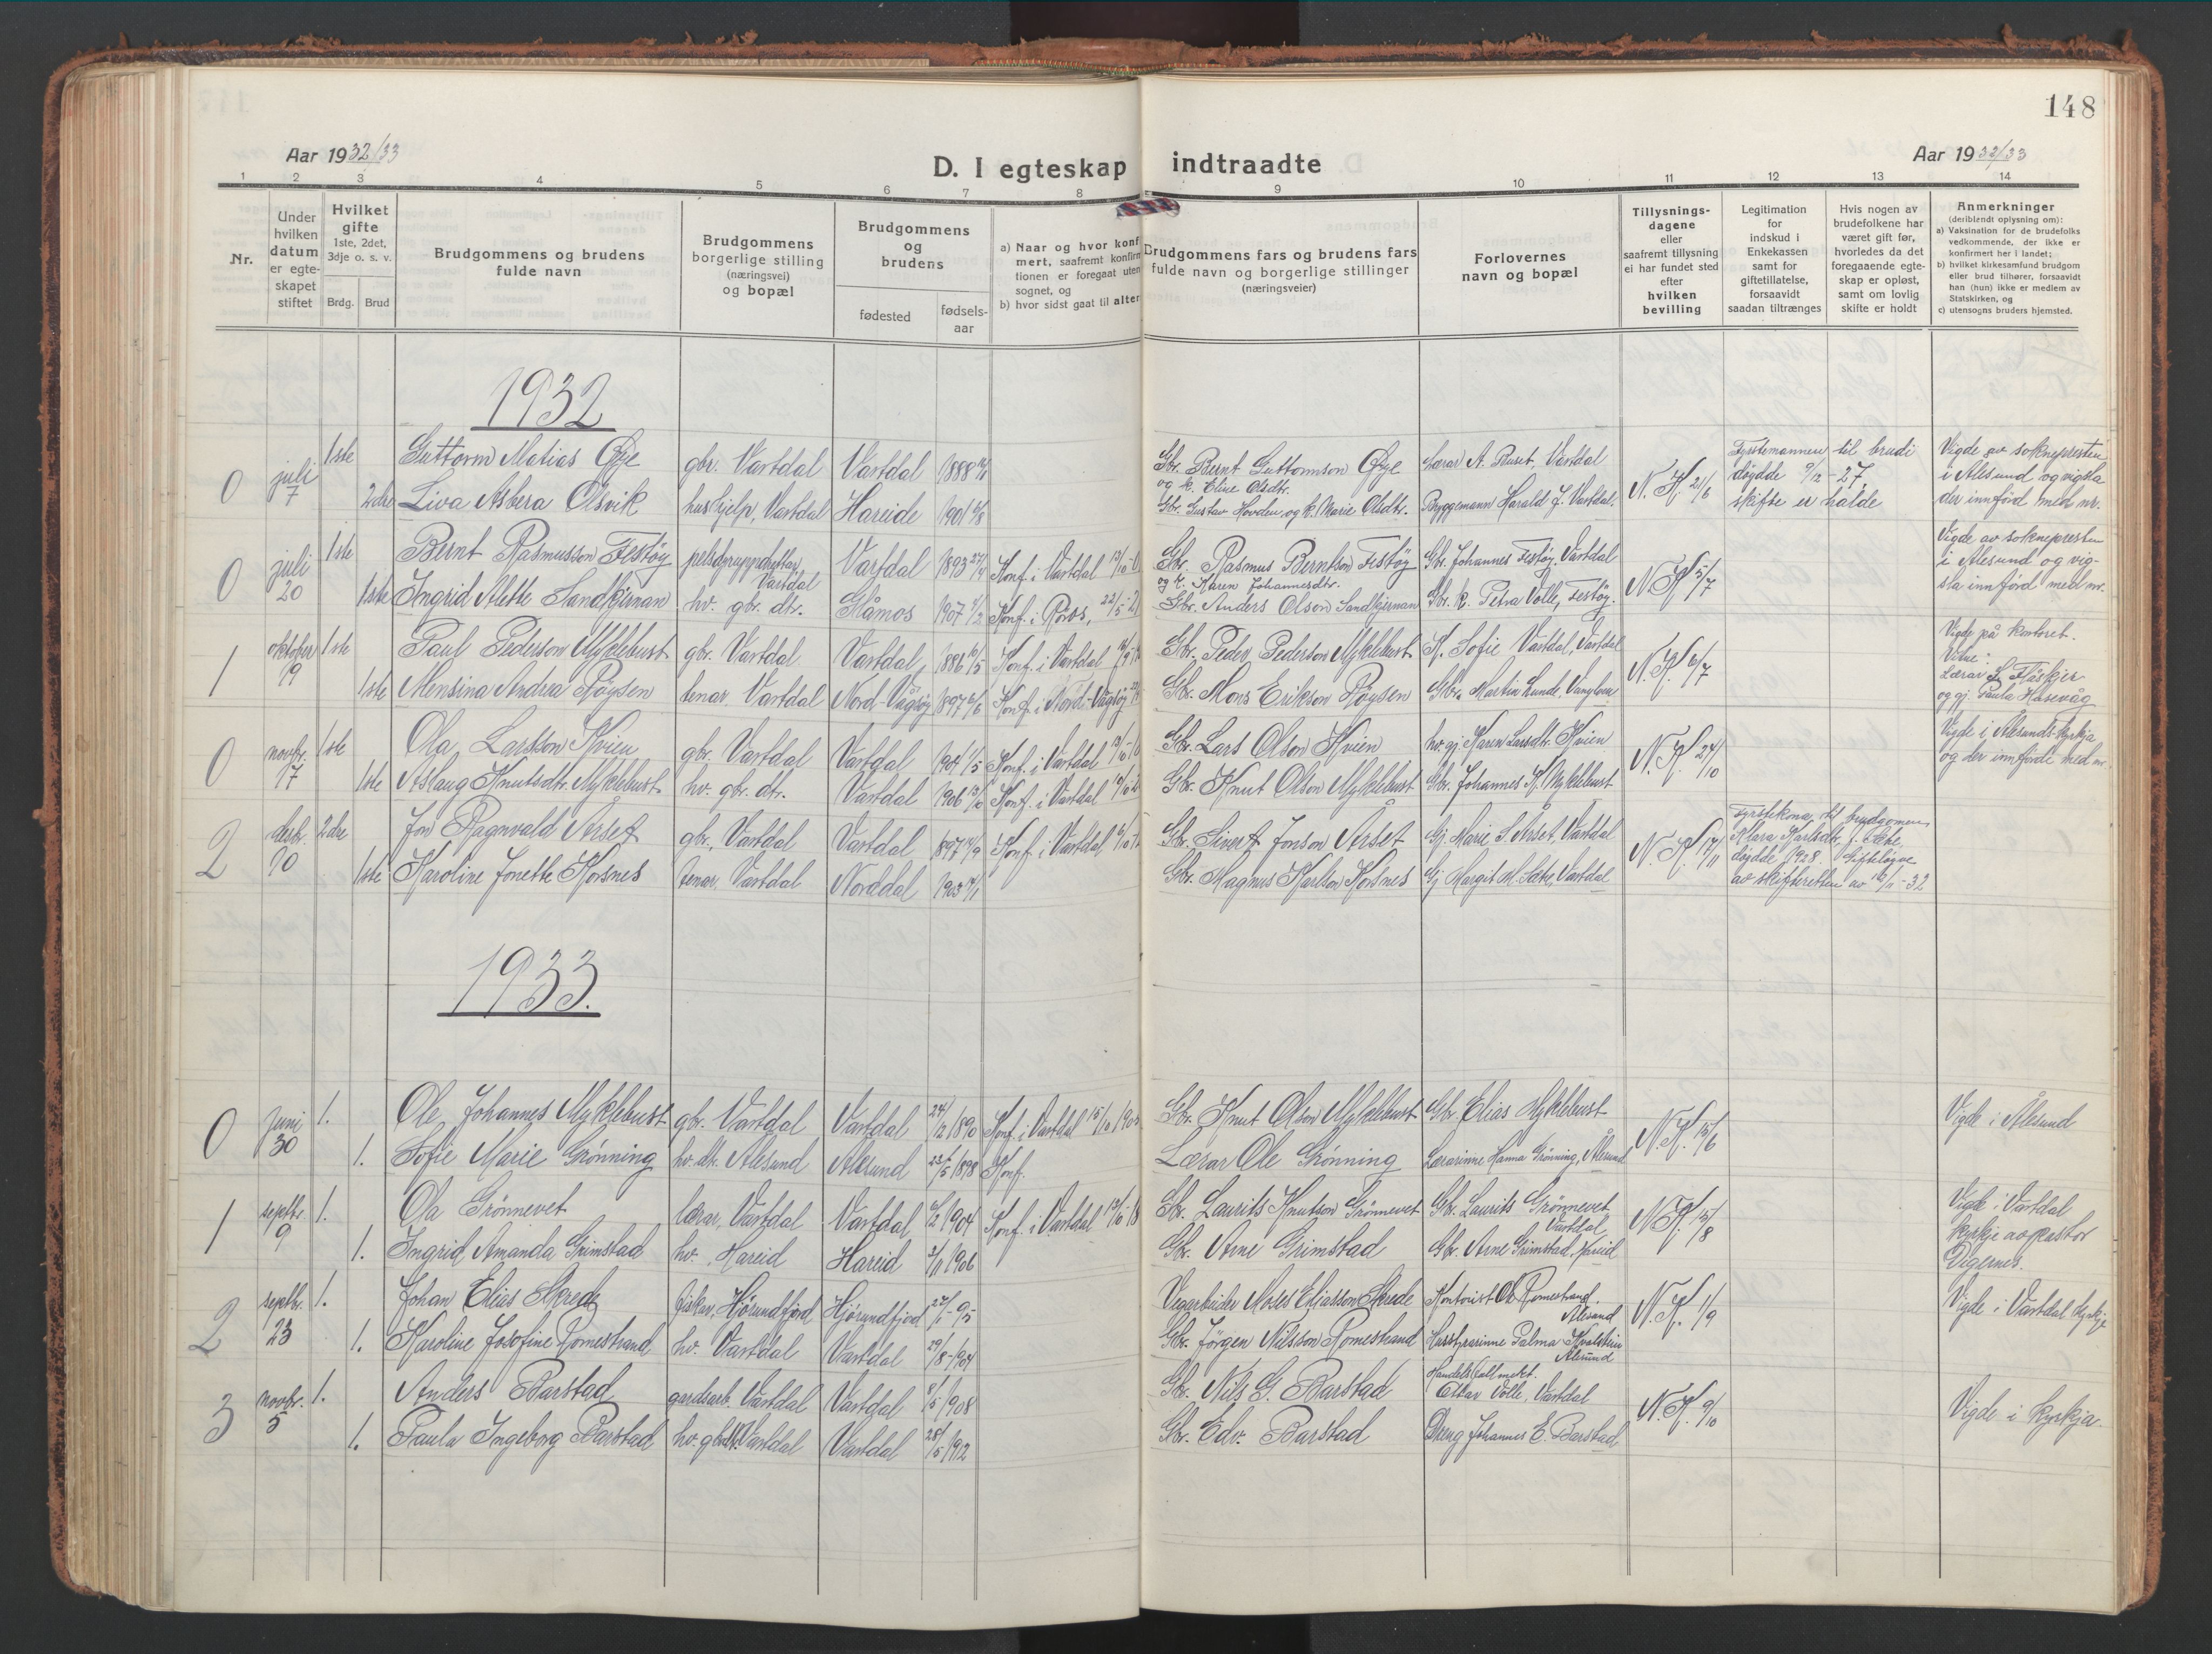 148
Aar 1932/33
D. I egteskap indtraadte
Aar 1932/33
1 2 3 4 5 6 7 8 9 10 11 12 13 14
Nr.
Under hvilken datum er egte-skapet stiftet
Hvilket gifte 1ste, 2det, 3dje o. s. v.
Brdg. Brud
Brudgommens og brudens fulde navn
Brudgommens borgerlige stilling (næringsvei) og bopæl
Brudgommens og brudens
fødested
fødsels-aar
a) Naar og hvor konf
mert, saafremt konfirm
tionen er foregaat uten
sognet, og
b) hvor sidst gaat til alter
Brudgommens fars og brudens fars fulde navn og borgerlige stillinger (næringsveier)
Forlovernes navn og bopæl
Tillysnings-dagene eller saafremt tillysning ei har fundet sted efter hvilken bevilling
Legitimation for indskud i Enkekassen samt for giftetillatelse, forsaavidt saadan tiltrænges
Hvis nogen av brudefolkene har været gift før, hvorledes da det foregaaende egte-skap er opløst, samt om lovlig skifte er holdt
Anmerkninger
(deriblendt oplysning om):
a) Vaksination for de brudefolks vedkommende, der ikke er konfirmert her i landet;
b) hvilket kirkesamfund brudgom eller brud tilhører, forsaavidt han (hun) ikke er medlem av Statskirken, og
c) utensogns bruders hjemsted.
1932
0 juli 7 1ste Guttorm Matias Øye gbr. Vartdal Vartdal 1888 Gbr. Bernt Guttormson Øye og k. Eline Olsdtr. Lærar A. Buset, Vartdal N. K. 21/6 Fyrstemannen til brudi døydde 9/12-27, skifte er halde Vigde av soknepresten i Ålesund og vigsla der innførd med nr.
2dre Liva Asbera Olsvik hushjelp, Vartdal Hareide 1901 Gbr. Gustav Hovden og k. Marie Olsdtr. Byggemann Harald J. Vartdal.
0 juli 20 1ste Bernt Rasmusson Festøy Vartdal Vartdal 1893 Konf. i Vartdal Gbr. Rasmus Berntson Festøy og k. Karen Johannesdtr. Gbr. Johannes Festøy, Vartdal N. K. 5/7 Vigde av soknepresten i Ålesund og vigsla innførd med nr.
1ste Ingrid Alette Sandkjernan hv. gbr. dtr. Glåmos 1907 Konf. i Røros, 22/5-2 Gbr. Anders Olson Sandkjernan Gbr. k. Petra Volle, Festøy.
1 oktober 19 1ste Paul Pederson Myklebust gbr. Vartdal Vartdal 1886 10/5 Konf. i Vartdal Gbr. Peder Pederson Myklebust K. Sofie Vartdal, Vartdal N. K. 6/7 Vigde på kontoret. Vitne: Lærar S. Flåskjer og gj. Paula Hasevåg
1ste Mensina Andrea Røysen tenar Vartdal Nord-Vågsøy 1897 6/6 Konf. i Nord-Vågsøy Gbr. Mons Erikson Røysen Gbr. Martin Lunde,
0 novbr. 17 1ste Ola Larsson Kvien gbr. Vartdal Vartdal 1904 1/5 Konf. i Vartdal Gbr. Lars Olson Kvien hv. gj. Karen Larsdtr. Kvien N. K. 24/10 Vigde i Ålesunds kyrkja og der innførde med nr.
1ste Aslaug Knutsdtr. Myklebust hv. gbr. dtr. Vartdal 1906 Konf. i Vartdal Gbr. Knut Olson Myklebust Gbr. Johannes K. Myklebust
2 desbr. 10 2dre Jon Ragnvald Årset gbr., Vartdal Vartdal 1897 Konf. i Vartdal Gbr. Sivert Jonson Årset Gj. Marie S. Årset, Vartdal N. K. 17/11 Fyrstekona til brudgomen Klara Karlsdtr. f. Sætre, døydde 1928. Gifteløyve av skifteretten av 16/11-32
1ste Karoline Jonette Korsnes tenar, Vartdal Norddal 1903 Gbr. Magnus Karlson Korsnes Gj. Margit M. Sætre, Vartdal
1933.
0 Juni 30 1. Ole Johannes Myklebust gbr. Vartdal Vartdal 24/12 1890 Konf. i Vartdal 15/10 190 Gbr. Knut Olson Myklebust Gbr. Elias Myklebust N. K. 15/6 Vigde i Ålesund
1. Sofie Marie Grønning hv. dtr. Ålesund Ålesund 23/5 1898 Konf. Lærar Ole Grønning Lærarinne Hanna Grønning, Ålesund
1 septbr. 9 1. Ola Grønnevet lærar, Vartdal Vartdal 1904 Konf. i Vartdal Gbr. Laurits Knutson Grønnevet Gbr. Laurits Grønnevet Vartdal N. K. 15/8 Vigde i Vartdal kyrkje av pastor Digernes.
1. Ingrid Amanda Grimstad hv. Hareid Hareid 1906 Gbr. Arne Grimstad Gbr. Arne Grimstad, Hareid
2 septbr. 23 1. Johan Elias Skrede fiskar, Hjørundfjord Hjørundfjord Vegarbeider Moses Eliasson Skrede Kontorist Ole Romestrand Ålesund N. K. 1/9 Vigde i Vartdal kyrkje
1. Karoline Josofine Romestrand hv. Vartdal Vartdal 29/8-1904 Gbr. Jørgen Nilsson Romestrand Husstyrarinne Palma Ålesund
3 novbr. 5 1. Anders Barstad gardsarb. Vartdal Vartdal 1908 Gbr. Nils G. Barstad Handelsfullmekt. Einar Volle, Vartdal N. K. 9/10 Vigde i kyrkja.
1. Paula Ingeborg Barstad hv. gbrdtr. Vartdal Vartdal 28/5 1912 Gbr. Edv. Barstad Dreng Johannes E. Barstad